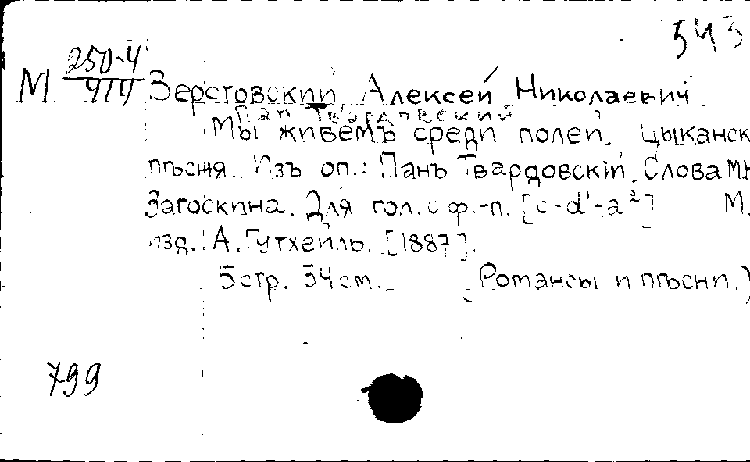 543
М 250-4/414 Зерстовский, Алексей Николаевич
Пан Твардовский
Мы живемъ среди полей. Цыканск
пѣсня. Изъ оп.: Панъ Твардовскій. Слова М.
Загоскина. Для гол. с ф.-п. [c-d¹-a²] М.
изд. А. Гутхейль. [1887].
5 стр. 34 см. (Романсы и пѣсни.)
799